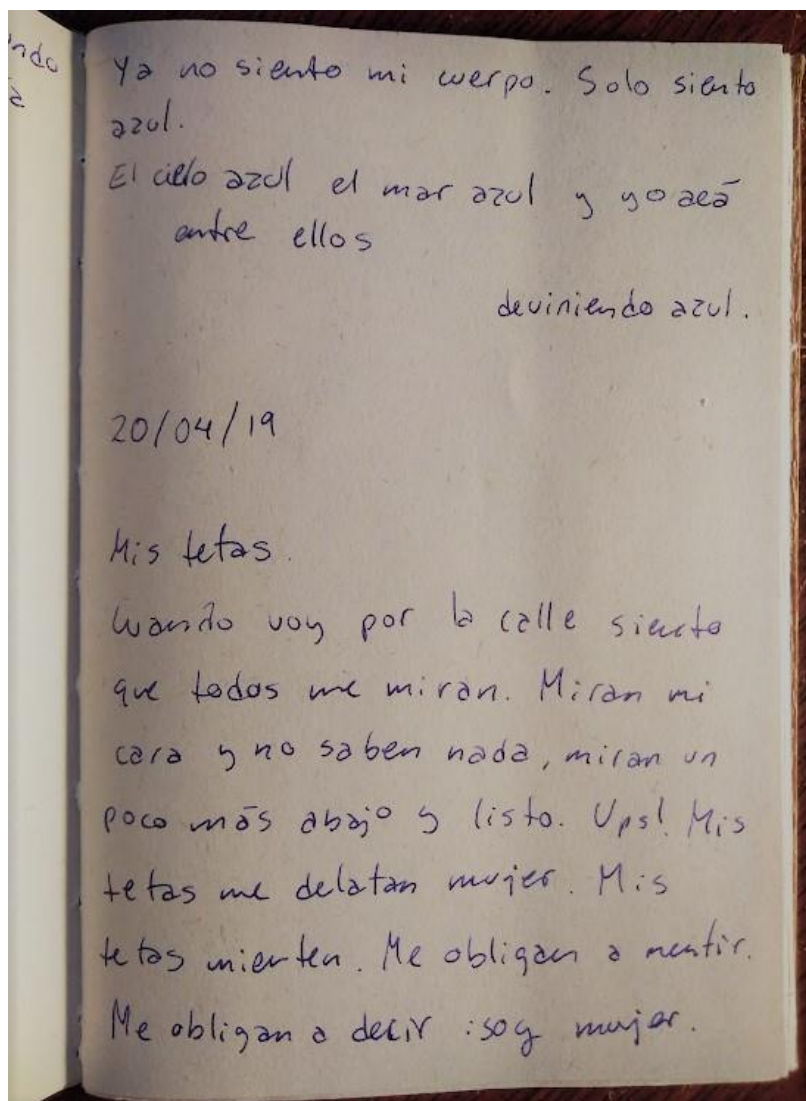 ndo
Ya no siento mi cuerpo. Solo siento
azul.
El cielo azul el mar azul y yo acá
entre ellos
deviniendo azul.
20/04/19
Mis tetas.
Cuando voy por la calle siento
que todos me miran. Miran mi
cara y no saben nada, miran un
poco más abajo y listo. Ups! Mis
tetas me delatan mujer. Mis
tetas mienten. Me obligan a mentir.
Me obligan a decir :soy mujer.